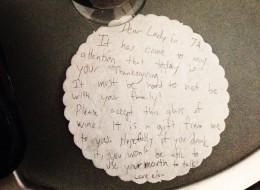 Dear Lady in 7A
It has come to my
attention that today is
your Thanksgiving.
It must be hard to not be
with your family!
Please accept this glass of
wine. It is a gift from me
to you. Hopefully if you drink
it, you won't be able to
use your mouth to talk.
Love,